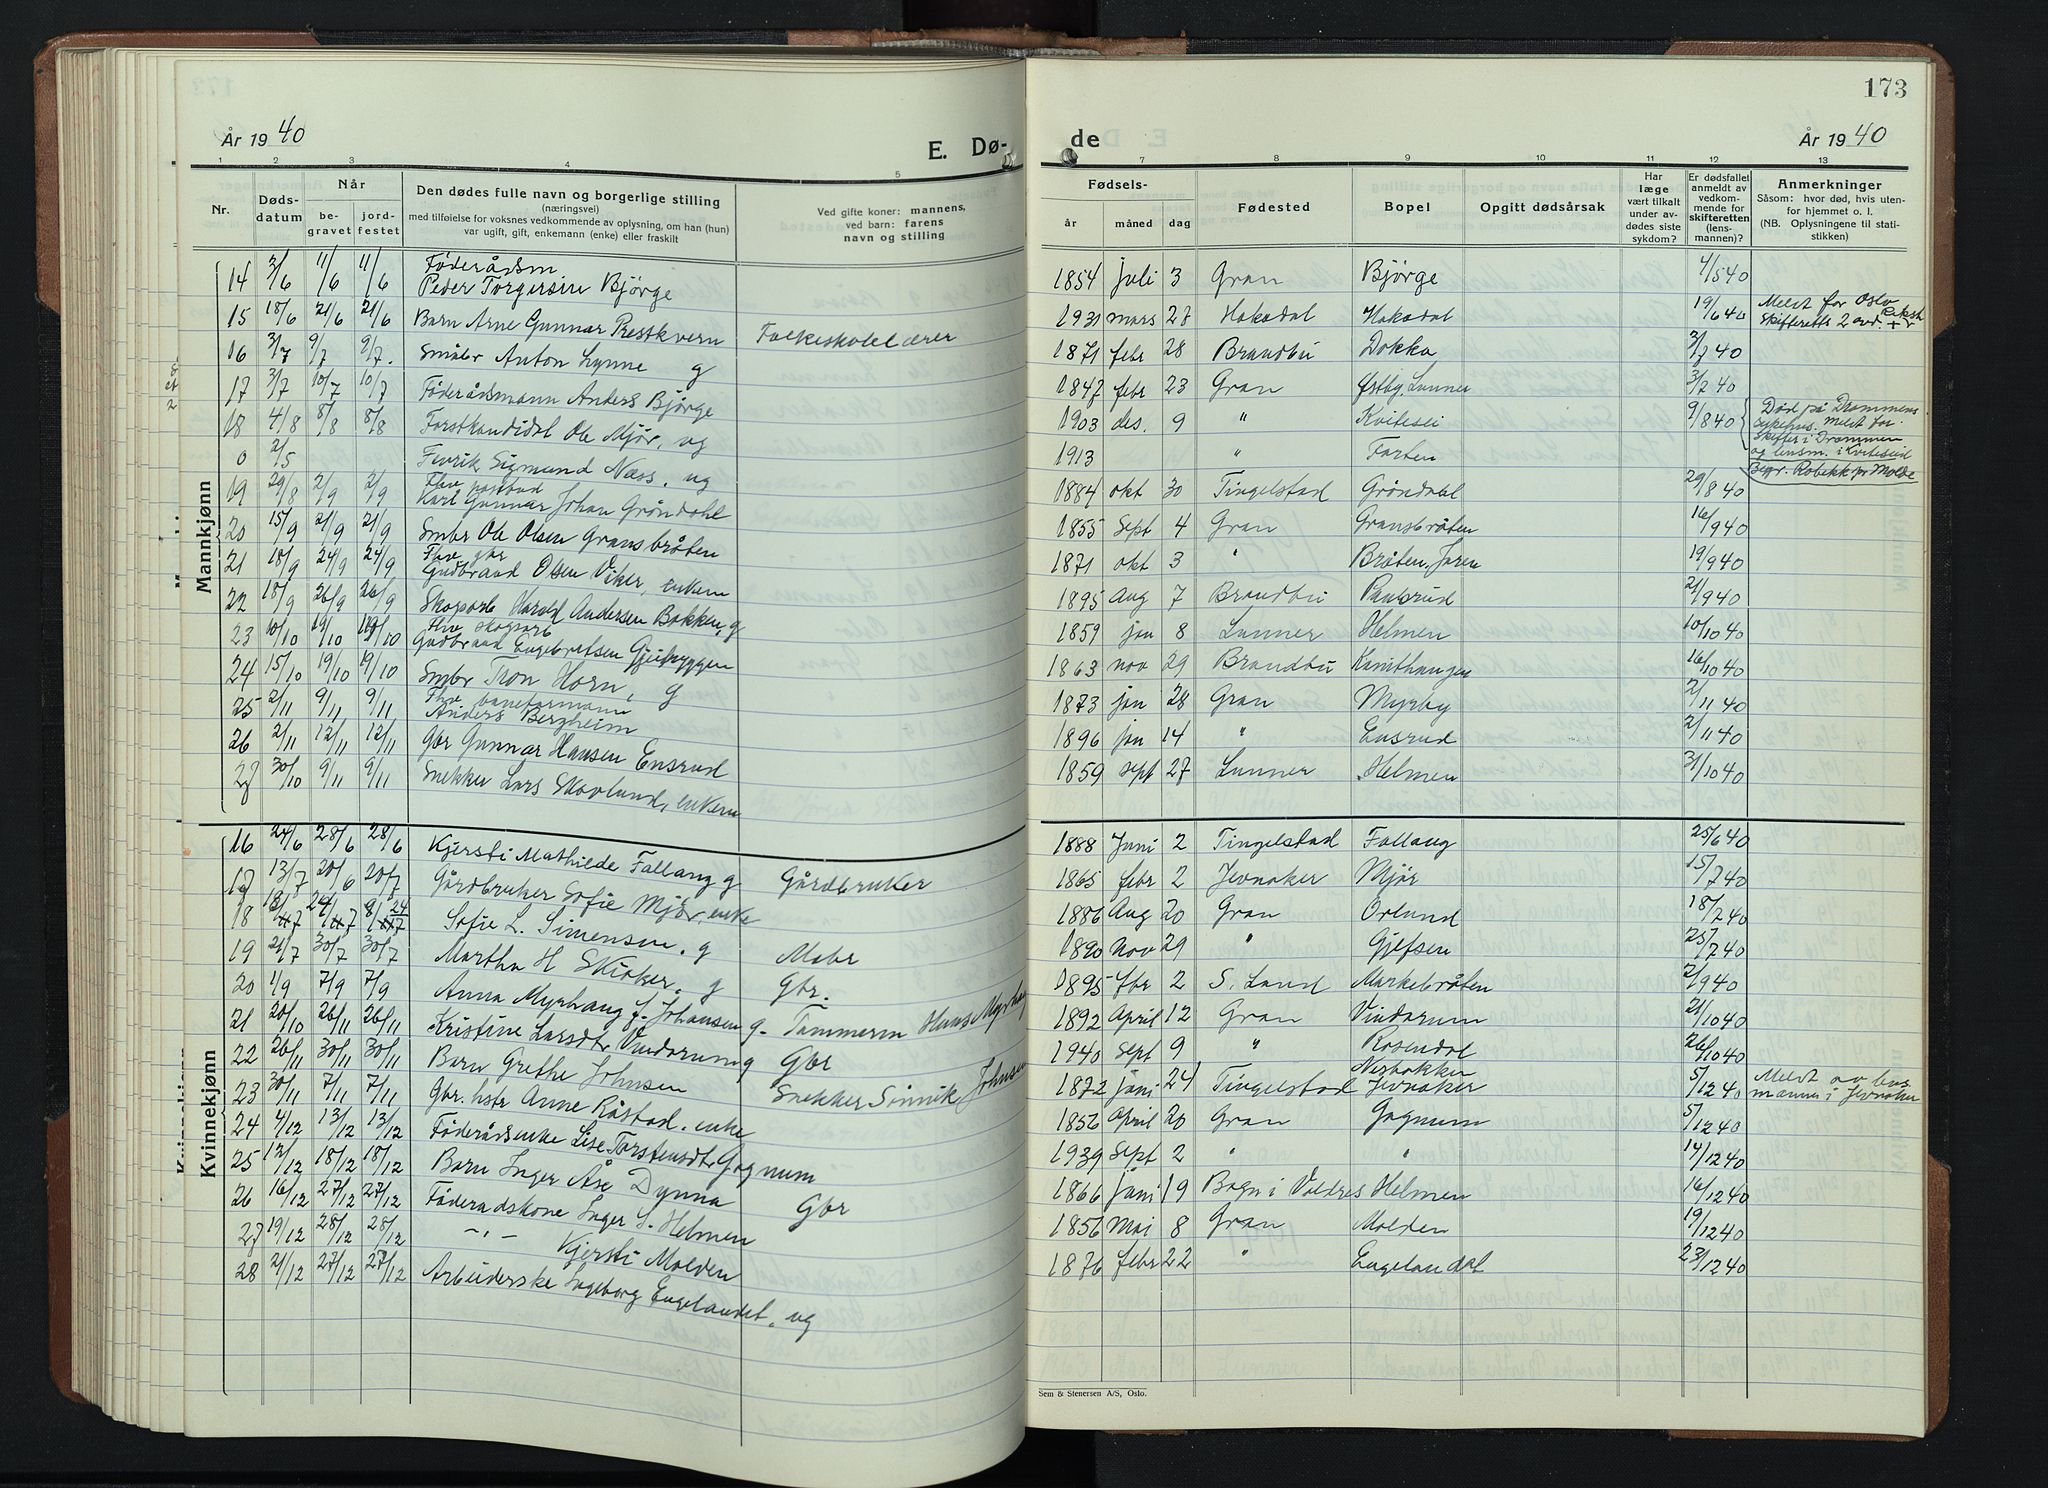 173
År 1940
E. Dø-
de
År 1940
1 2 3 4 5
7 8 9 10 11 12 13
Nr.
Døds-
datum
Når
be-
gravet
jord-
festet
Den dødes fulle navn og borgerlige stilling
(næringsvei)
med tilføielse for voksnes vedkommende av oplysning, om han (hun)
var ugift, gift, enkemann (enke) eller fraskilt
Ved gifte koner: mannens,
ved barn: farens
navn og stilling
Fødsels-
år måned dag
Fødested
Bopel
Opgitt dødsårsak
Har
læge
vært tilkalt
under av-
dødes siste
sykdom?
Er dødsfallet
anmeldt av
vedkom-
mende for
skifteretten
(lens-
mannen)?
Anmerkninger
Såsom: hvor død, hvis uten-
for hjemmet o. l.
(NB. Oplysningene til stati-
stikken)
Mannkjønn
14 3/6 11/6 11/6 Föderådsm
Peder Torgersen Bjørge 1854 juli 3 Gran Bjørge 4/5 40
15 18/6 21/6 21/6 Barn Arne Gunnar Prestkvern Folkeskolelærer 1931 mars 27 Hakadal Hakadal 19/6 40 Meldt for Oslo
Skifteretts 2 avd.
16 3/7 9/7 9/7. Småbr Anton Lynne g 1871 febr 28 Brandbu Dokka 3/7 40
17 3/7 10/7 10/7 Föderådsmann Anders Bjørge 1847 febr 23 Gran Østby, Lunner 3/7 40
18 4/8 8/8 8/8 Forstkandidat Ole Mjør, ug 1903 des. 9 " Kviteseid 9/8 40 Død på Drammens
sykehus. Meldt for
Skifter i Drammen
og lensm. i Kviteseid
0 2/5 Sigmund Næss. ug 1913 " Forten Begr. Røbekk pr Molde
19 29/8 2/9 2/9 Fhv postbud
Karl Gunnar Johan Grøndahl 1884 okt 30 Tingelstad Grøndahl 29/8 40
20 15/9 21/9 21/9 Smbr Ole Olsen Gransbråten 1855 Sept 4 Gran Gransbråten 16/9 40
21 18/9 24/9 24/9 Fhv gbr
Gudbrand Olsen Viker, enkem 1871 okt 3 " Bråten, Jaren 19/9 40
22 18/9 26/9 26/9 Skogsarb Harald Andersen Bakken, g 1895 Aug 7 Brandbu 21/9 40
23 10/10 19/10 19/10 Fhv skogsarb
Gudbrand Engebretsen Gjefsryggen 1859 jan 8 Lunner Helmen 10/10 40
24 15/10 19/10 19/10 Smbr Tron Horn, g 1863 nov 29 Brandbu 16/10 40
25 2/11 9/11 9/11 Fhv baneformann
Anders Bergheim 1873 jan 28 Gran Myrby 2/11 40
26 2/11 12/11 12/11 Gbr Gunnar Hansen Ensrud 1896 jan 14 " Ensrud 2/11 40
27 30/10 9/11 9/11 Snekker Lars Skovlund, enkem 1859 sept 27 Lunner Helmen 31/10 40
Kvinnekjønn
16 24/6 28/6 28/6 Kjersti Mathilde Fallang g Gårdbruker 1888 Juni 2 Tingelstad Fallang 25/6 40
17 13/7 20/6 20/7 Gårdbruker Sofie Mjør, enke 1865 febr 2 Jevnaker Mjør 15/7 40
18 18/7 24/7 24/7 Sofie L. Simensen. g Mabr 1886 Aug 20 Gran Orlund 18/7 40
19 21/7 30/7 30/7 Martha H Skiaker, g Gbr. 1890 Nov 29 " Gjefsen 25/7 40
20 1/9 7/9 7/9 Anna Myrhaug f. Johansen g. Tømmerm Hans Myrhaug 1895 fbr 2 S. Land Markebråten 2/9 40
21 20/10 26/11 26/11 Kristine Larsdtr Vindorum g Gbr 1892 April 12 Gran Vindorum 21/10 40
22 26/11 30/11 30/11 Barn Grethe Johnsen Snekker Sinnik Johnsen 1940 Sept 9 " Rosendal 26/10 40
23 30/11 7/11 7/11 Gbr. hstr Anne Råstad. enke 1872 juni 24 Tingelstad Nesbakken
Jevnaker 5/12 40 Meldt av lens
mannen i Jevnaker
24 4/12 13/12 13/12 Föderådsenke Lise Torstensdtr Gagnum 1856 April 20 Gran Gagnum 5/12 40
25 13/12 18/12 18/12 Barn Inger Åse Dynna Gbr 1939 Sept 2 " " 14/12 40
26 16/12 27/12 27/12 Föderadskone Inger S. Helmen 1866 juni 19 Bagn i Valdres Helmen 16/12 40
27 19/12 28/12 28/12 -"- Kjersti Molden 1856 Mai 8 Gran Molden 19/12 40
28 21/12 27/12 27/12 Arbeiderske Ingeborg Engelandet. ug 1876 febr 22 " Engelandet 23/12 40
Sem & Stenersen A/S, Oslo.